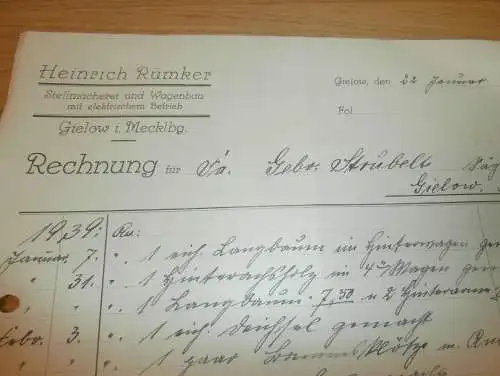 Heinrich Rümker
Stellmacherei und Wagenbau
mit elektrischem Betrieb
Gielow i. Mecklbg.
Gielow, den 22 Januar
Fol.
Rechnung für Fa. Gebr. Strübelt Säg
Gielow.
1939. An:
Januar 7. " 1 eich. Langbaum im Hinterwagen gem
" 31. " 1 Hinterachsholz im 4" Wagen gem
" " " 1 Langbaum 7,50 u 2 Hinterarme
Febr. 3. " 1 eich. Deichsel gemacht
" " " 1 paar